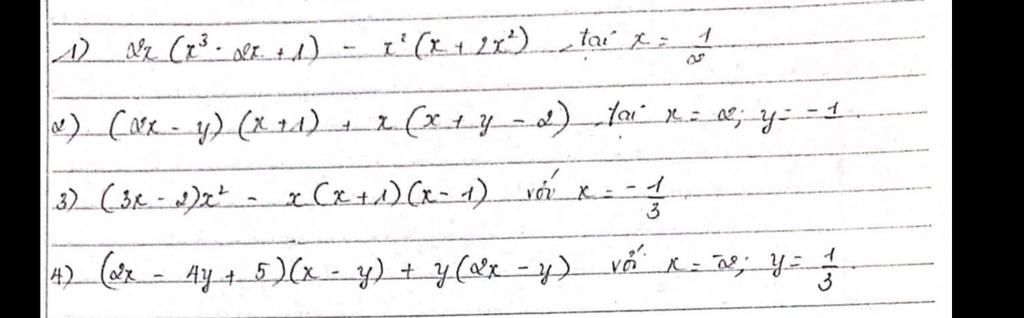 1) 2x (x³ - 2x + 1) - x² (x + 2x²) tại x = 1/2
2) (2x - y) (x + 1) + x (x + y - 2) tại x = 2; y = -1.
3) (3x - 2)x² - x (x + 1) (x - 1) với x = -1/3
4) (2x - 4y + 5)(x - y) + y(2x - y) với x = -2; y = 1/3.